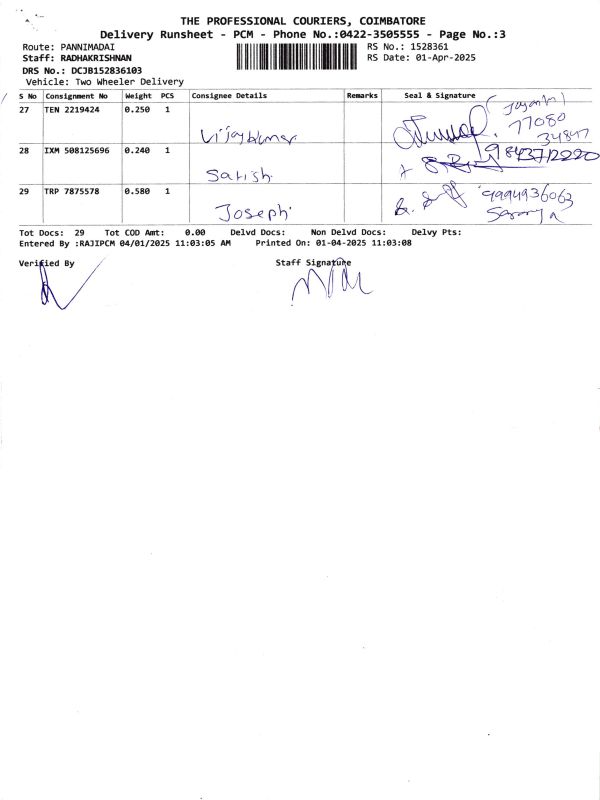 THE PROFESSIONAL COURIERS, COIMBATORE
Delivery Runsheet - PCM - Phone No.:0422-3505555 - Page No.:3
Route: PANNIMADAI RS No.: 1528361
Staff: RADHAKRISHNAN RS Date: 01-Apr-2025
DRS No.: DCJB152836103
Vehicle: Two Wheeler Delivery
S No Consignment No Weight PCS Consignee Details Remarks Seal & Signature
27 TEN 2219424 0.250 1 Vijaykumar Jayanthi
77080
34847
28 IXM 508125696 0.240 1 Satish 9843712220
29 TRP 7875578 0.580 1 Joseph 9994936063
Tot Docs: 29 Tot COD Amt: 0.00 Delvd Docs: Non Delvd Docs: Delvy Pts:
Entered By :RAJIPCM 04/01/2025 11:03:05 AM Printed On: 01-04-2025 11:03:08
Verified By Staff Signature